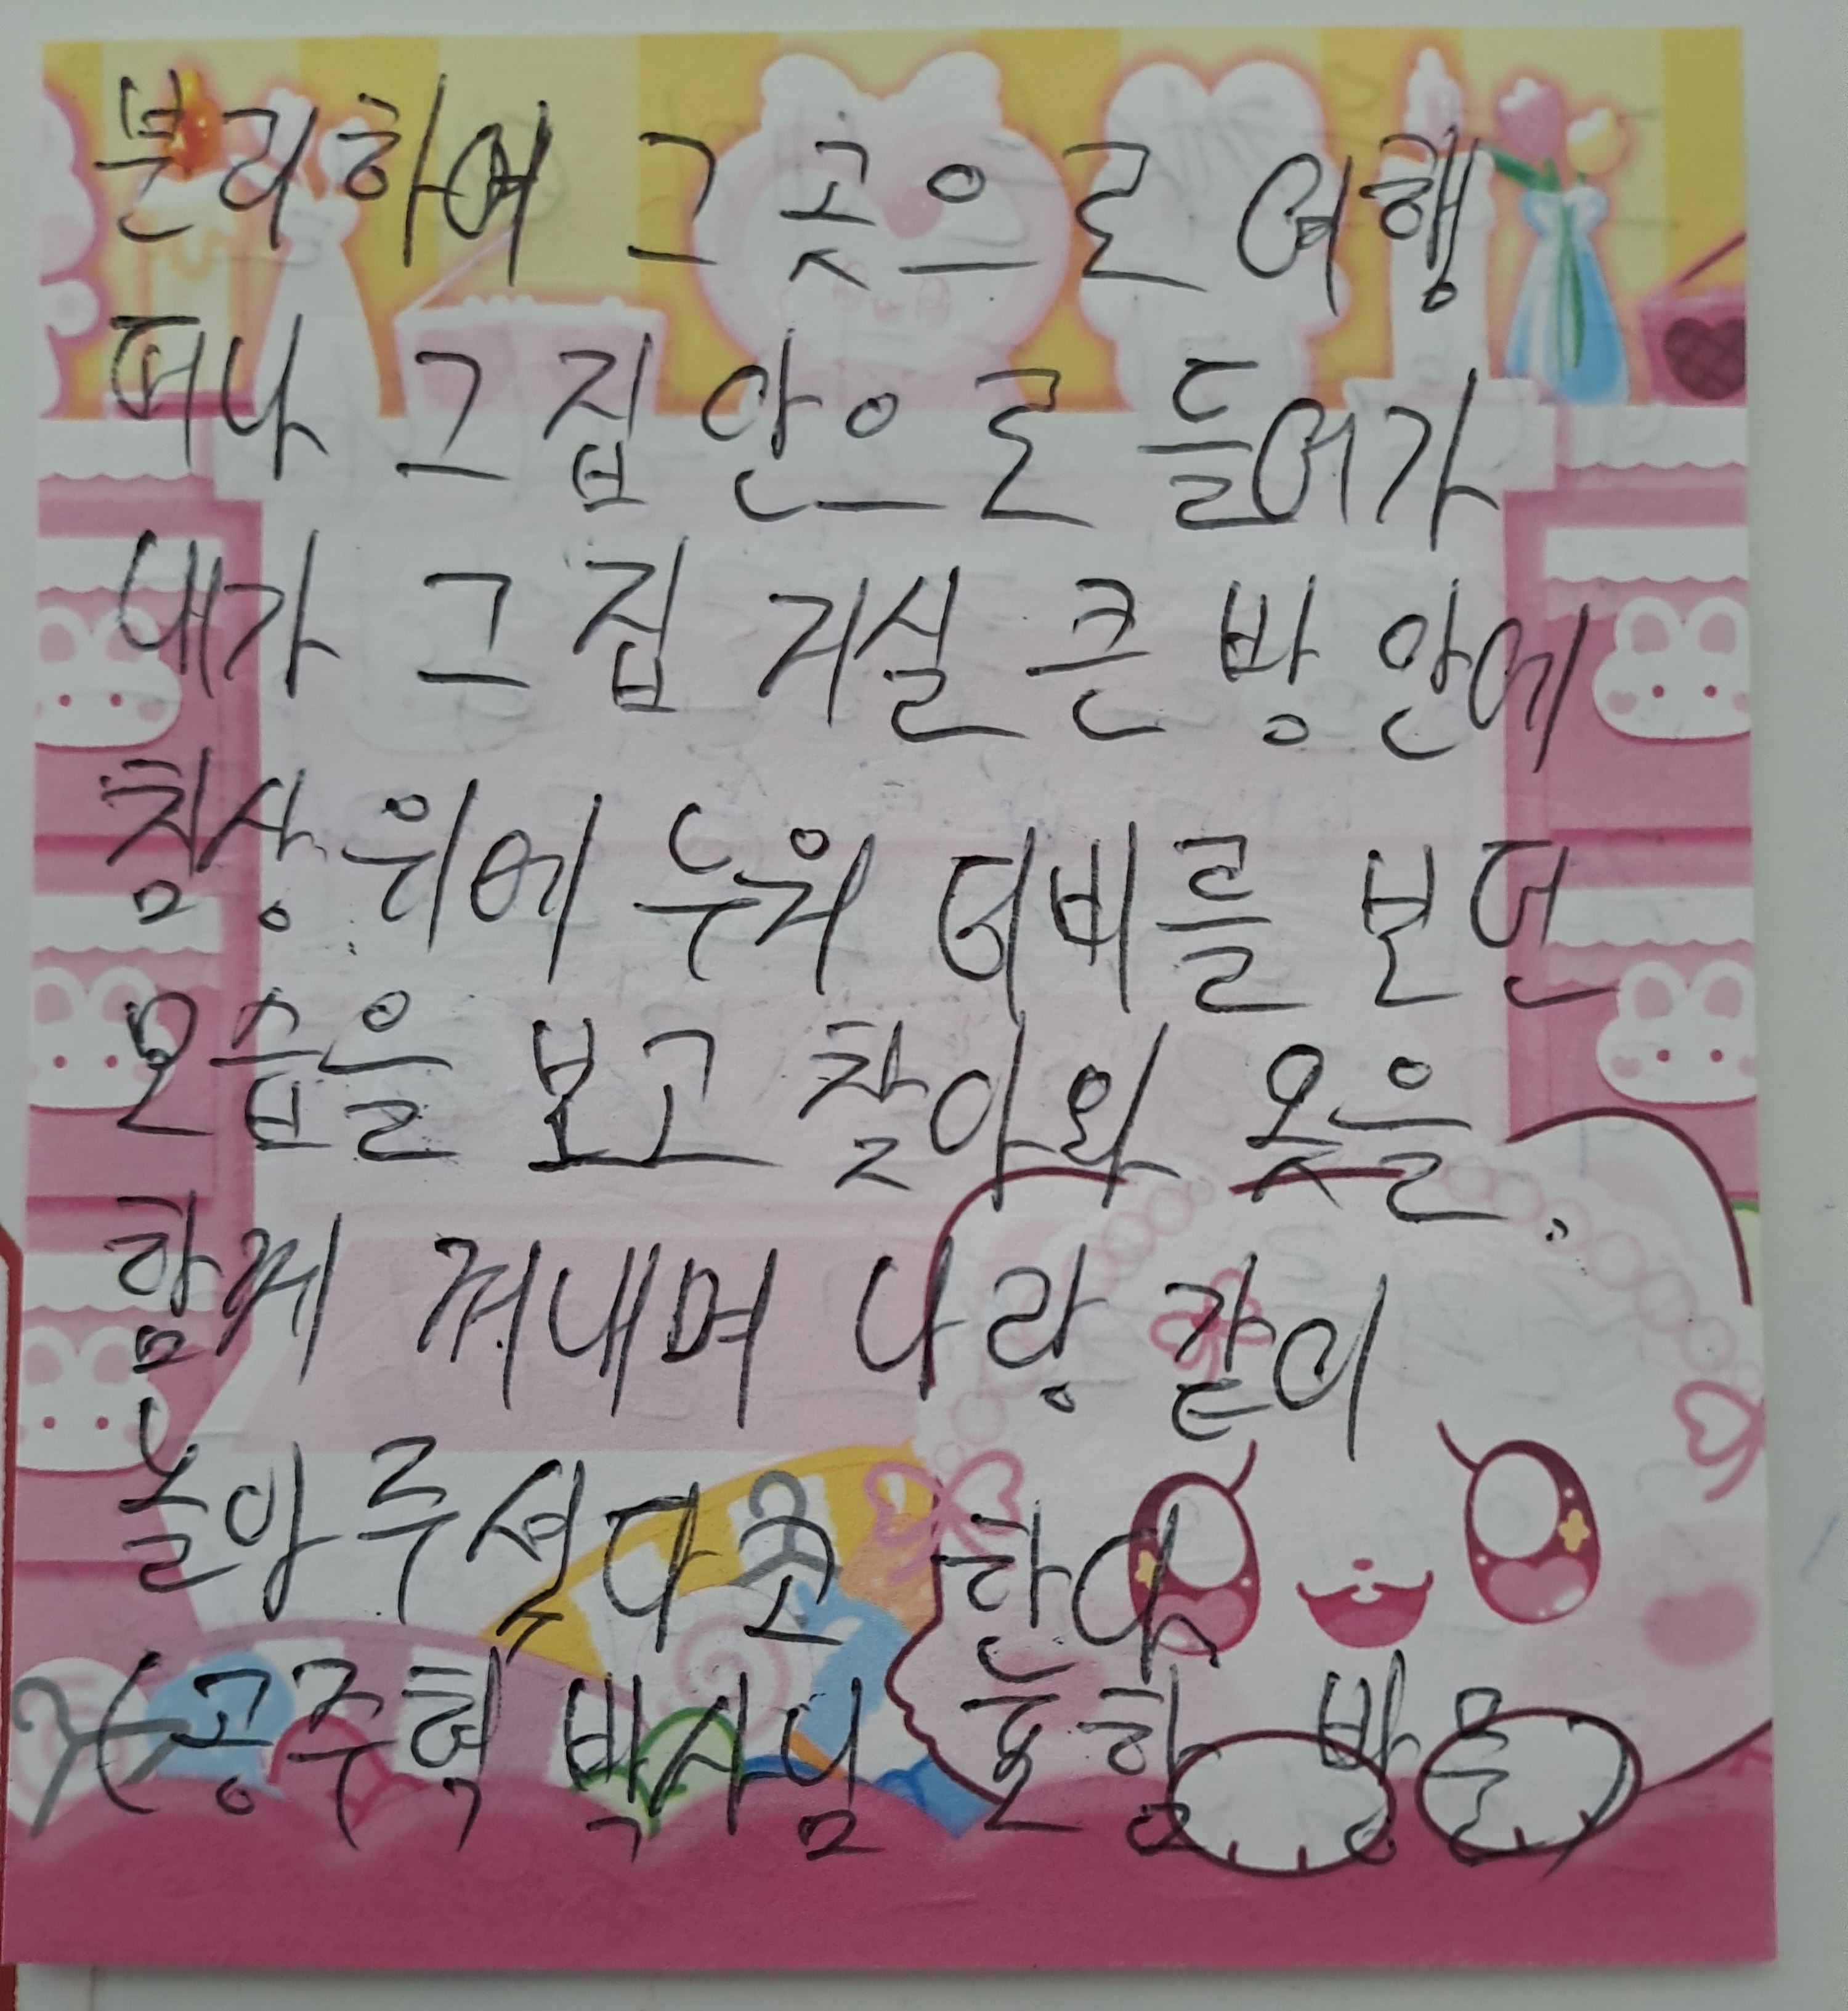 분리하여 그 곳으로 여행
떠나 그 집 안으로 들어가
내가 그 집 거실 큰 방 안에
침상 위에 누워 티비를 보던
모습을 보고 찾아와 옷을
함께 꺼내며 나랑 같이
놀아 주셨다고 한다
(공주혁 박사님 혼합 방은